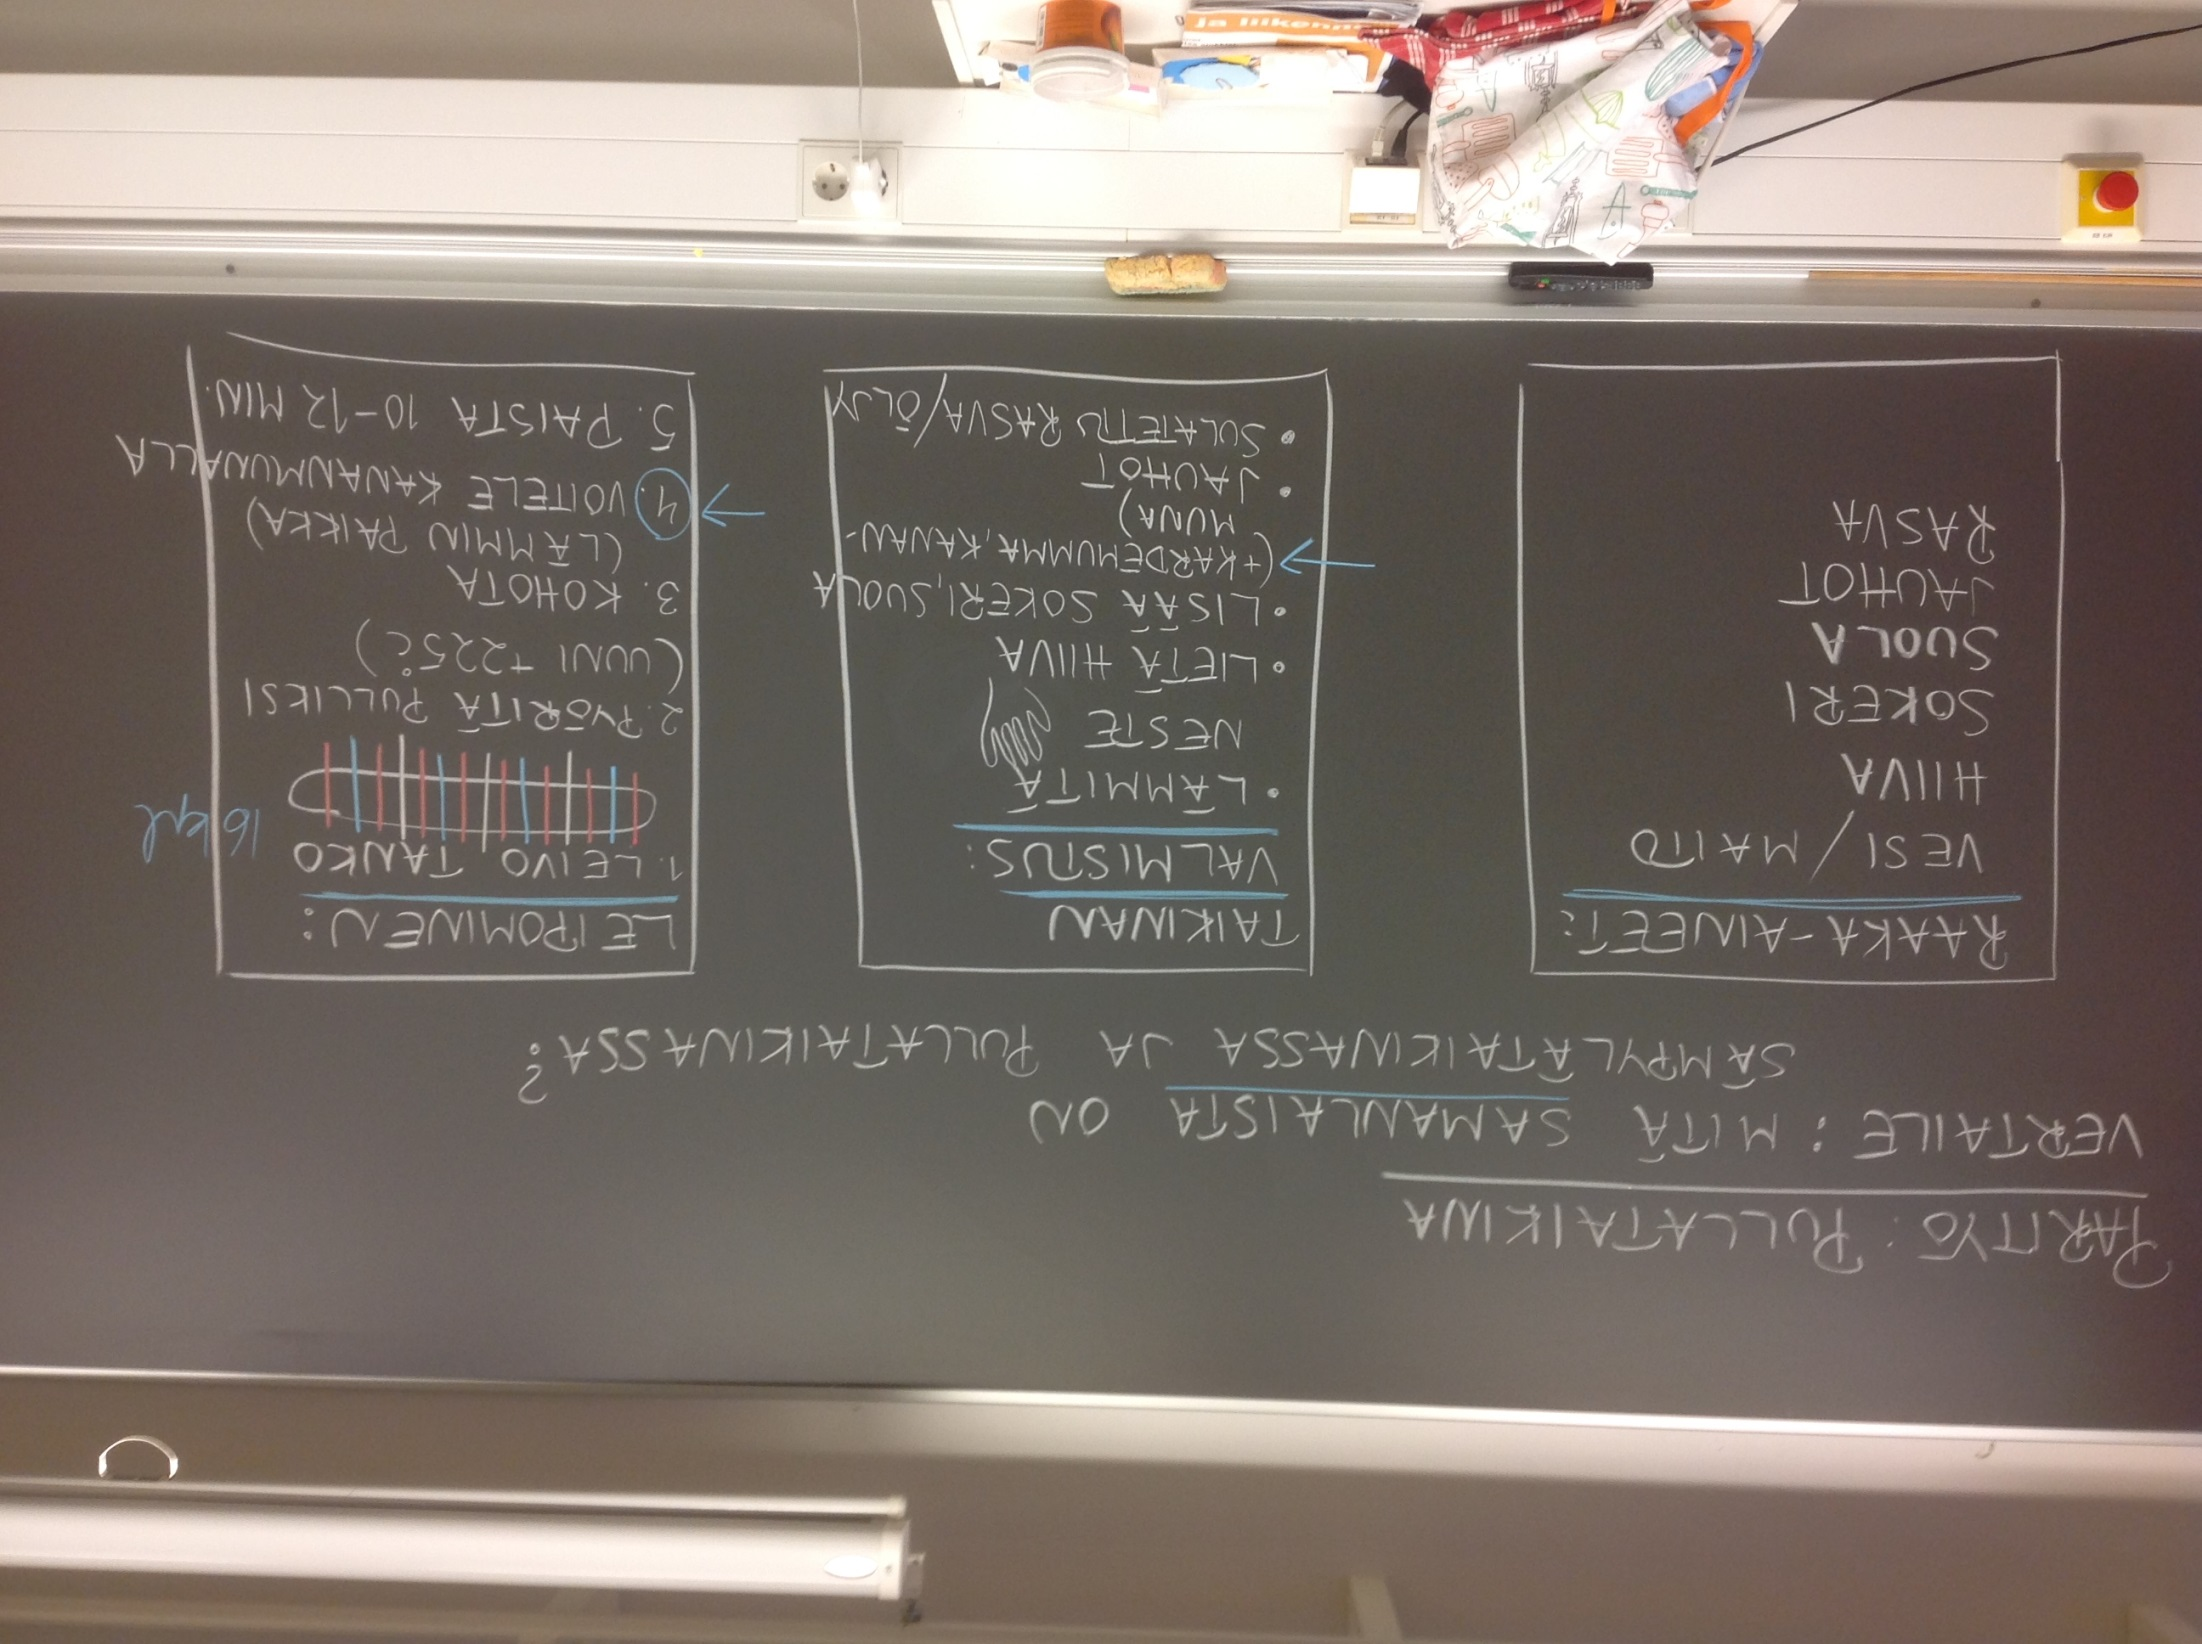 PARITYÖ: PULLATAIKINA
VERTAILE: MITÄ SAMANLAISTA ON
SÄMPYLÄTAIKINASSA JA PULLATAIKINASSA?
RAAKA-AINEET:
VESI/MAITO
HIIVA
SOKERI
SUOLA
JAUHOT
RASVA
TAIKINAN
VALMISTUS:
• LÄMMITÄ
NESTE
• LIETÄ HIIVA
• LISÄÄ SOKERI, SUOLA
(+KARDEMUMMA, KANAN-
MUNA)
• JAUHOT
• SULATETTU RASVA/ÖLJY
LEIPOMINEN:
1. LEIVO TANKO
16 kpl
2. PYÖRITÄ PULLIKSI
(UUNI +225°C)
3. KOHOTA
(LÄMMIN PAIKKA)
4. VOITELE KANANMUNALLA
5. PAISTA 10-12 MIN.
ja liikenne